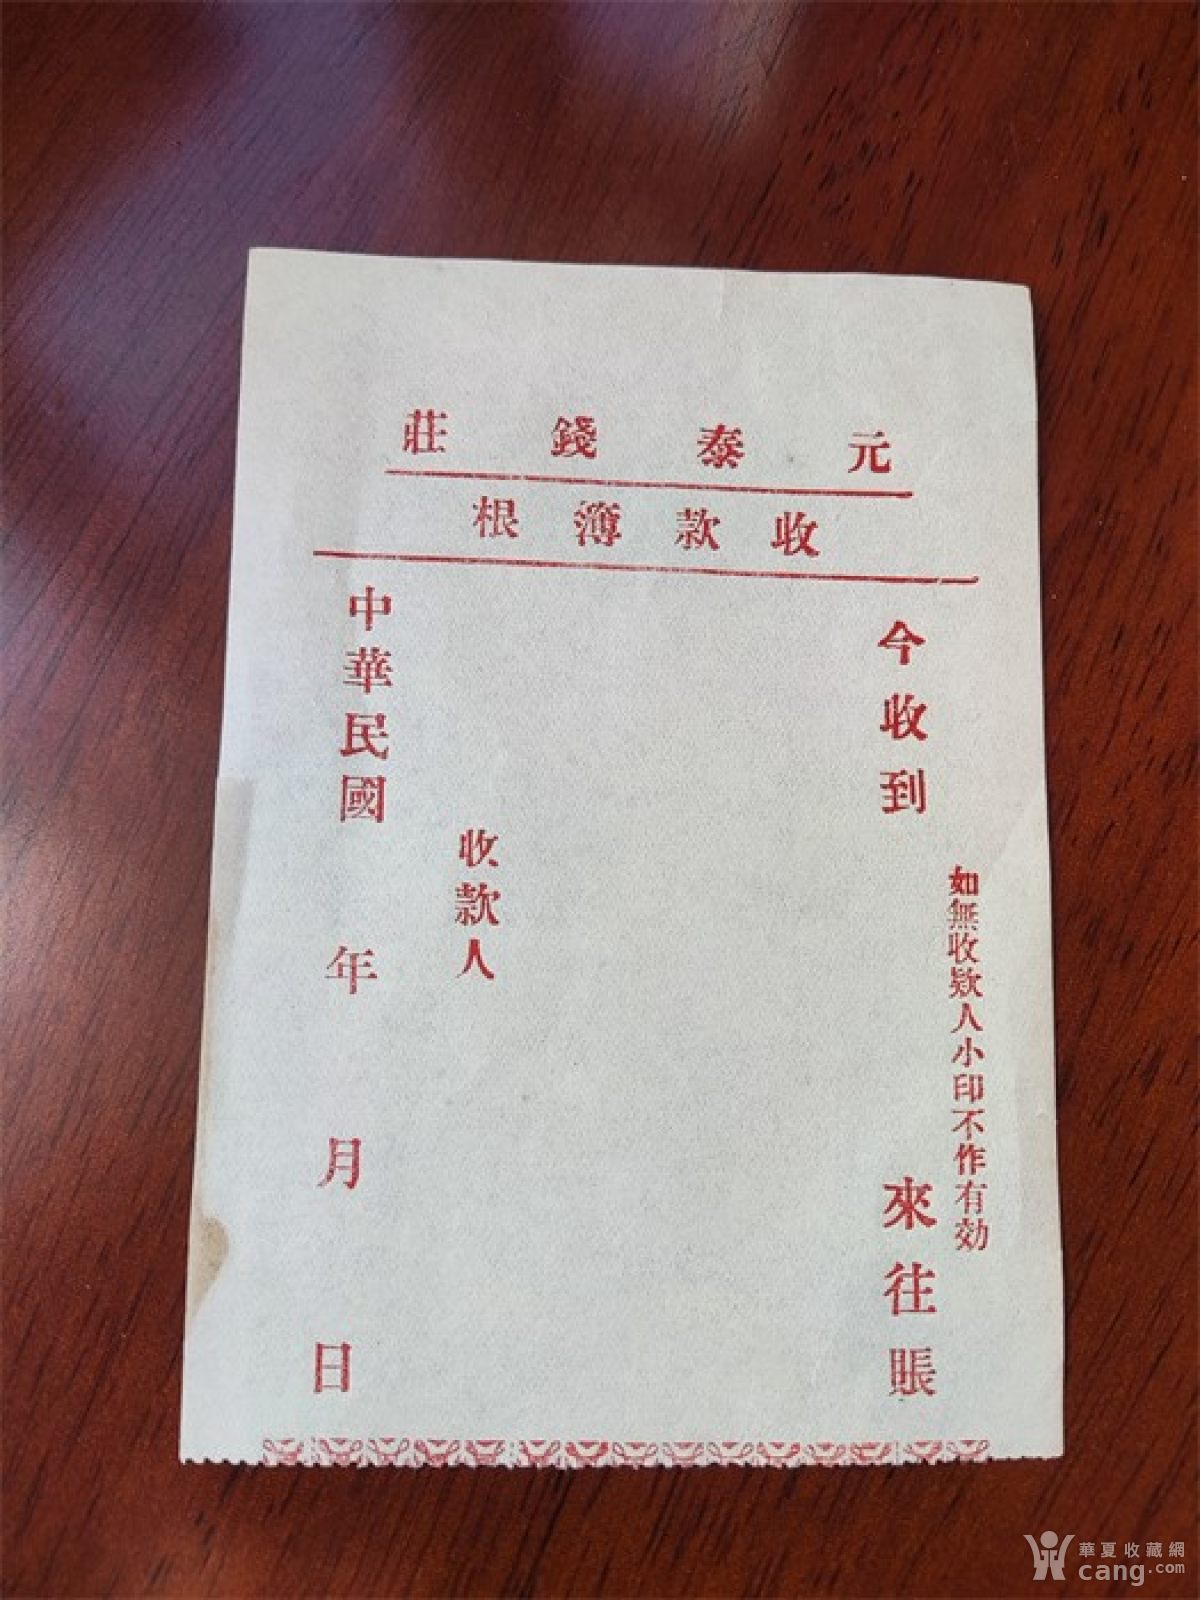 元泰錢莊
收款簿根
如無收欵人小印不作有効
今收到
來往賬
收款人
中華民國 年 月 日
華夏收藏網
cang.com